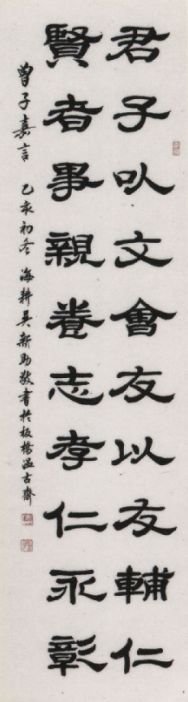 君子以文會友以友輔仁
賢者事親養志孝仁永彰
曾子嘉言 乙亥初冬 海粹吳新助敬書於板橋溫古齋